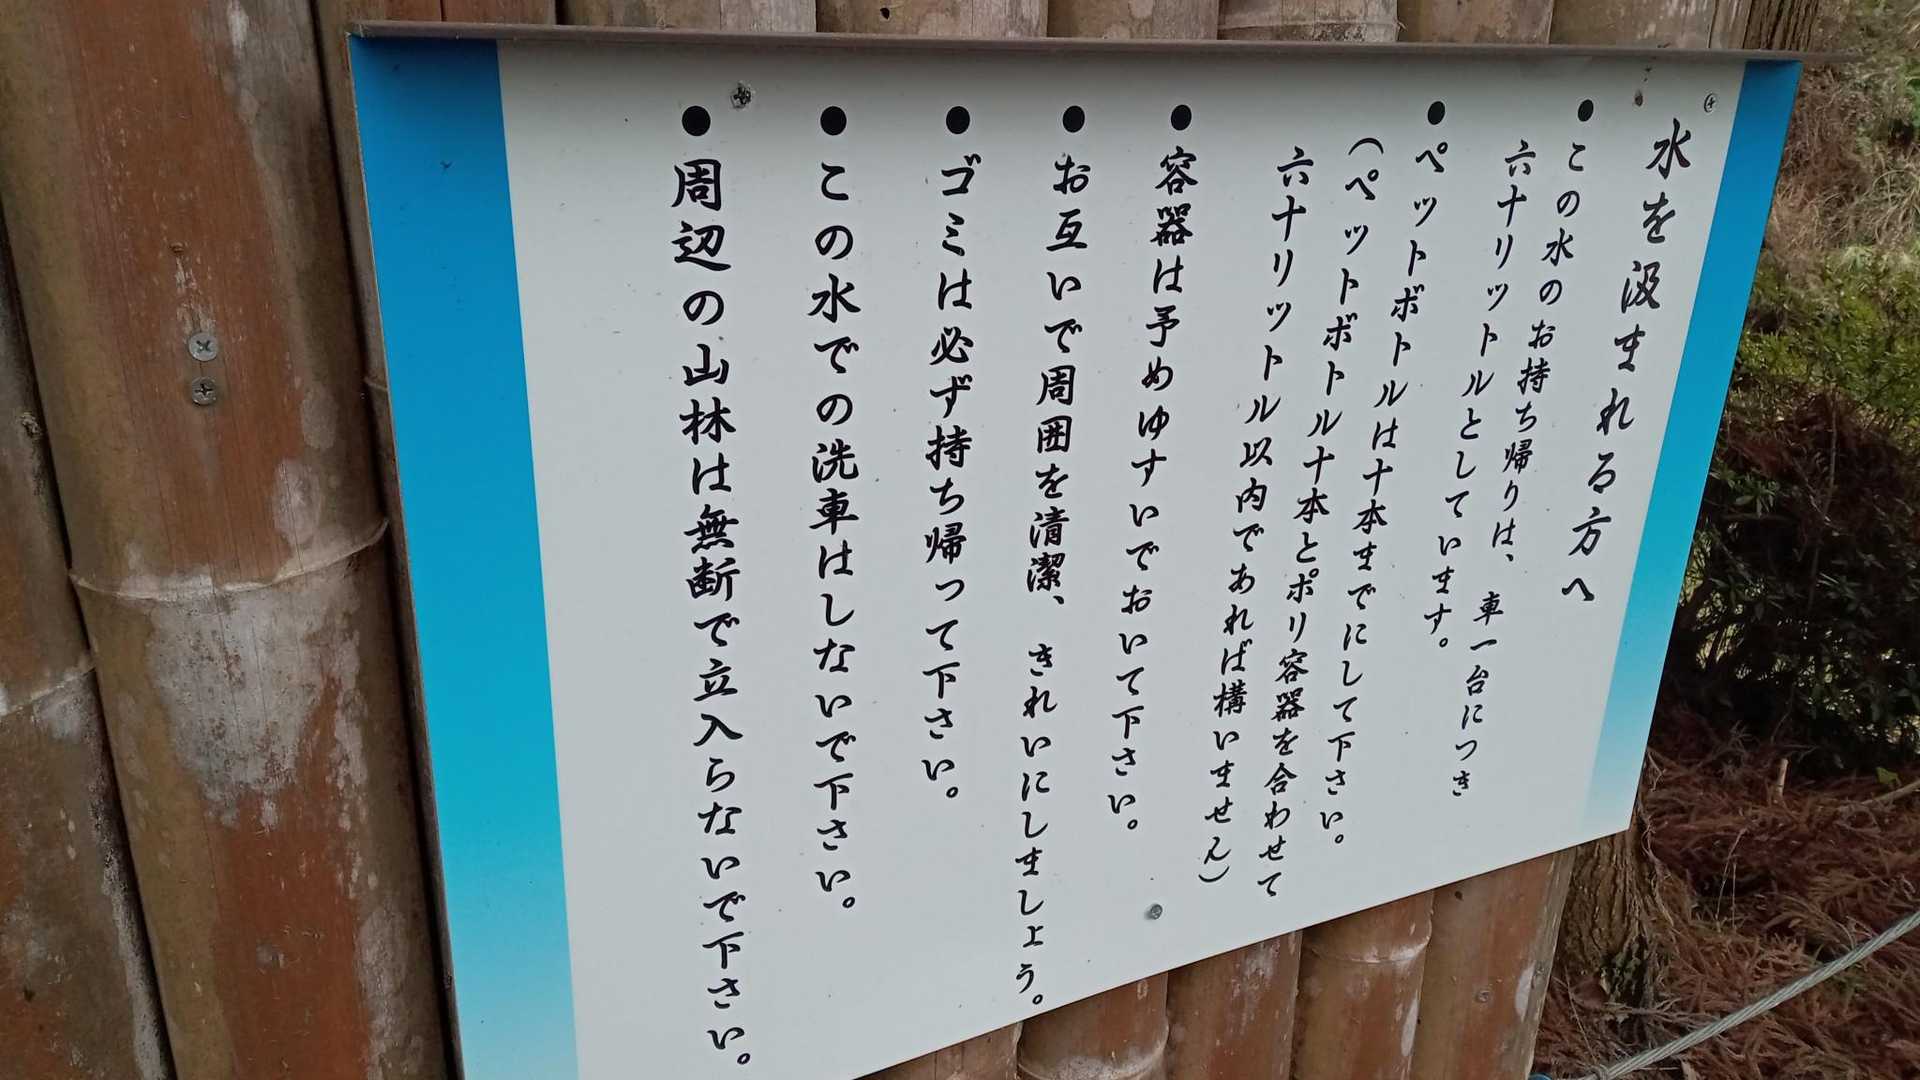 水を汲まれる方へ
●この水のお持ち帰りは、車一台につき
六十リットルとしています。
●ペットボトルは十本までにして下さい。
（ペットボトル十本とポリ容器を合わせて
六十リットル以内であれば構いません）
●容器は予めゆすいでおいて下さい。
●お互いで周囲を清潔、きれいにしましょう。
●ゴミは必ず持ち帰って下さい。
●この水での洗車はしないで下さい。
●周辺の山林は無断で立入らないで下さい。